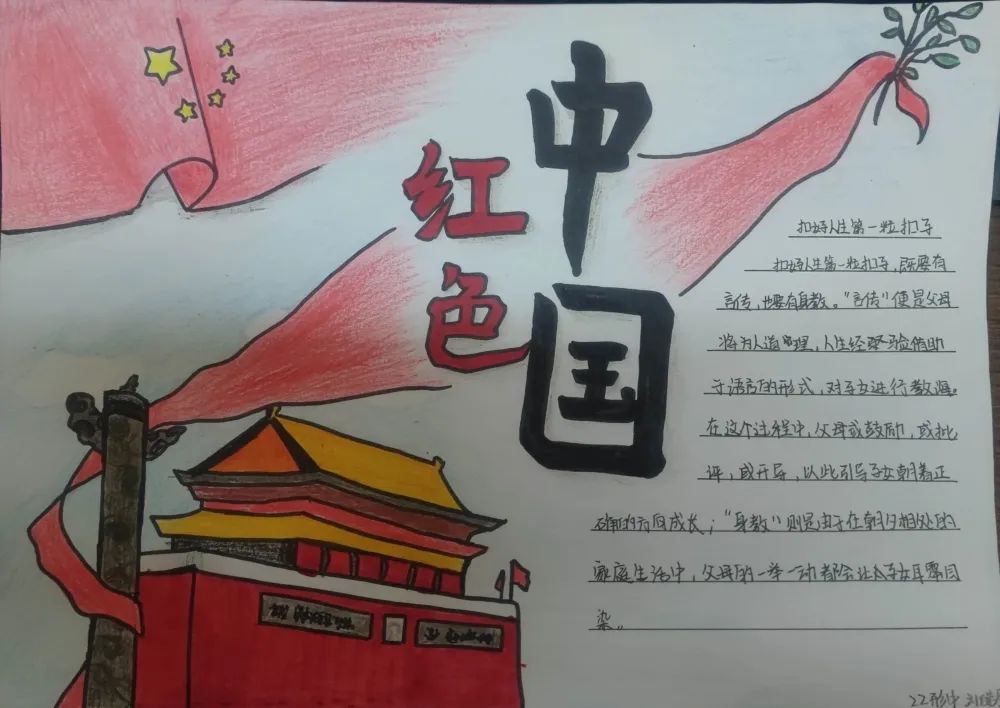 红色
中国
扣好人生第一粒扣子
扣好人生第一粒扣子，既要有
言传，也要有身教。“言传”便是父母
将为人道理，人生经验借助
于语言的形式，对子女进行教诲。
在这个过程中，父母或鼓励，或批
评，或开导，以此引导子女朝着正
确的方向成长；“身教”则是由于在朝夕相处的
家庭生活中，父母的一举一动都会让子女耳濡目
染。